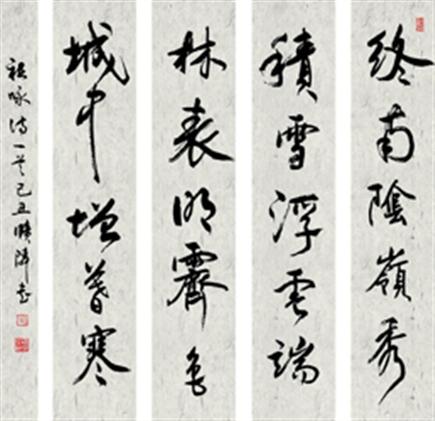 終南陰嶺秀
積雪浮雲端
林表明霽色
城中增暮寒
祖咏诗一首己丑